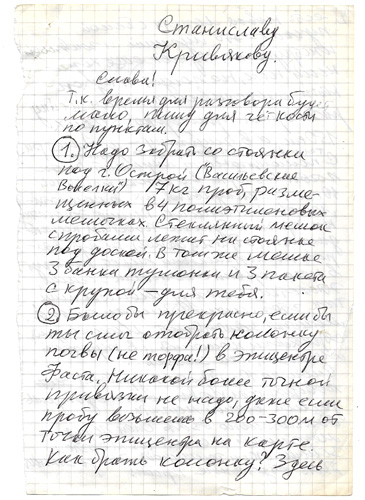 Станиславу
Кривякову.
Слава!
Т.к. время для разговора буд.
мало, пишу для четкости
по пунктам.
1. Надо забрать со стоянки
под г. Острой ("Васильевские
7 кг проб, разме-
щенных в 4 полиэтиленовых
мешочках. Стеклянный мешок
с пробами лежит на стоянке
под доской. В том же мешке
3 банки тушонки и 3 пакета
с крупой – для тебя.
2. Было бы прекрасно, если бы
ты смог отобрать колонку
почвы (не торфа!) в эпицентре
Фаста. Никакой более точной
привязки не надо, даже если
пробу возьмешь в 200-300 м от
точки эпицентра на карте.
Как брать колонку? Здесь